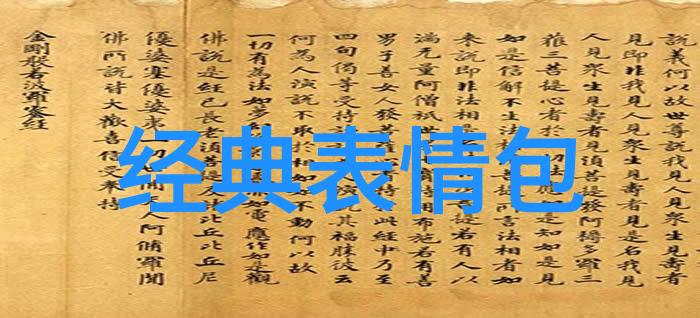 說義何以故世尊說我見人見衆生見壽者
見即非我見人見衆生見壽者是名我見
人見衆生見壽者見須菩提發阿耨多羅三
菩提心者於切法應如是知如是見
如是信解不生法相菩提所言法相者如
來說即非法相是提若有人以
滿无量阿僧祇世持用布施若有善
男子善女人發菩持此經乃至
四句偈等受持讀演說其福勝彼云
何為人演說不取於相如如不動何以故
一切有為法如夢如電應作如是觀
佛說是經已長老須菩提及比丘比丘尼
優婆塞優婆夷一切間人阿脩羅聞
佛所說皆大歡喜信受奉持
金剛般若波羅蜜經
经典表情包